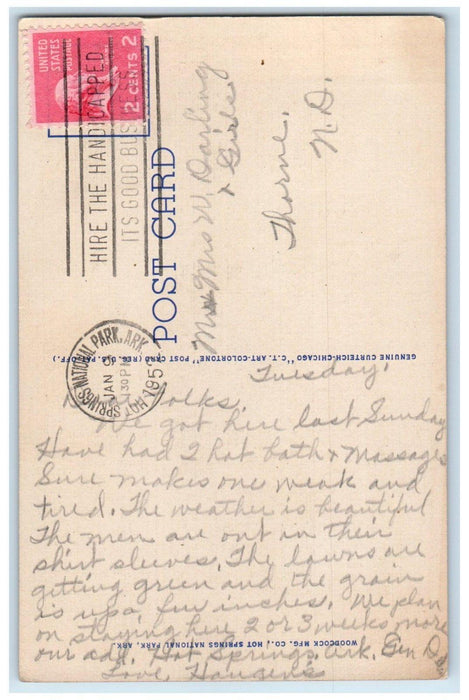 UNITED
STATES
POSTAGE
2 CENTS 2
HIRE THE HANDICAPPED
ITS GOOD BUSINESS
POST CARD
Mr & Mrs W. Darling
& Girls
Thorne.
N. D.
HOT SPRINGS NATIONAL PARK, ARK.
JAN
30 PM
195
GENUINE CURTEICH-CHICAGO "C.T. ART-COLORTONE" POST CARD (REG. U.S. PAT. OFF.)
Tuesday.
Folks,
We got here last Sunday
Have had 2 hot bath & massages
Sure makes one weak and
tired. The weather is beautiful
The men are out in their
shirt sleeves. The lawns are
getting green and the grain
is up a few inches. We plan
on staying here 2 or 3 weeks more
our add. Hot Springs. Ark. Gen Del
Love, Haugens
WOODCOCK MFG. CO., HOT SPRINGS NATIONAL PARK, ARK.